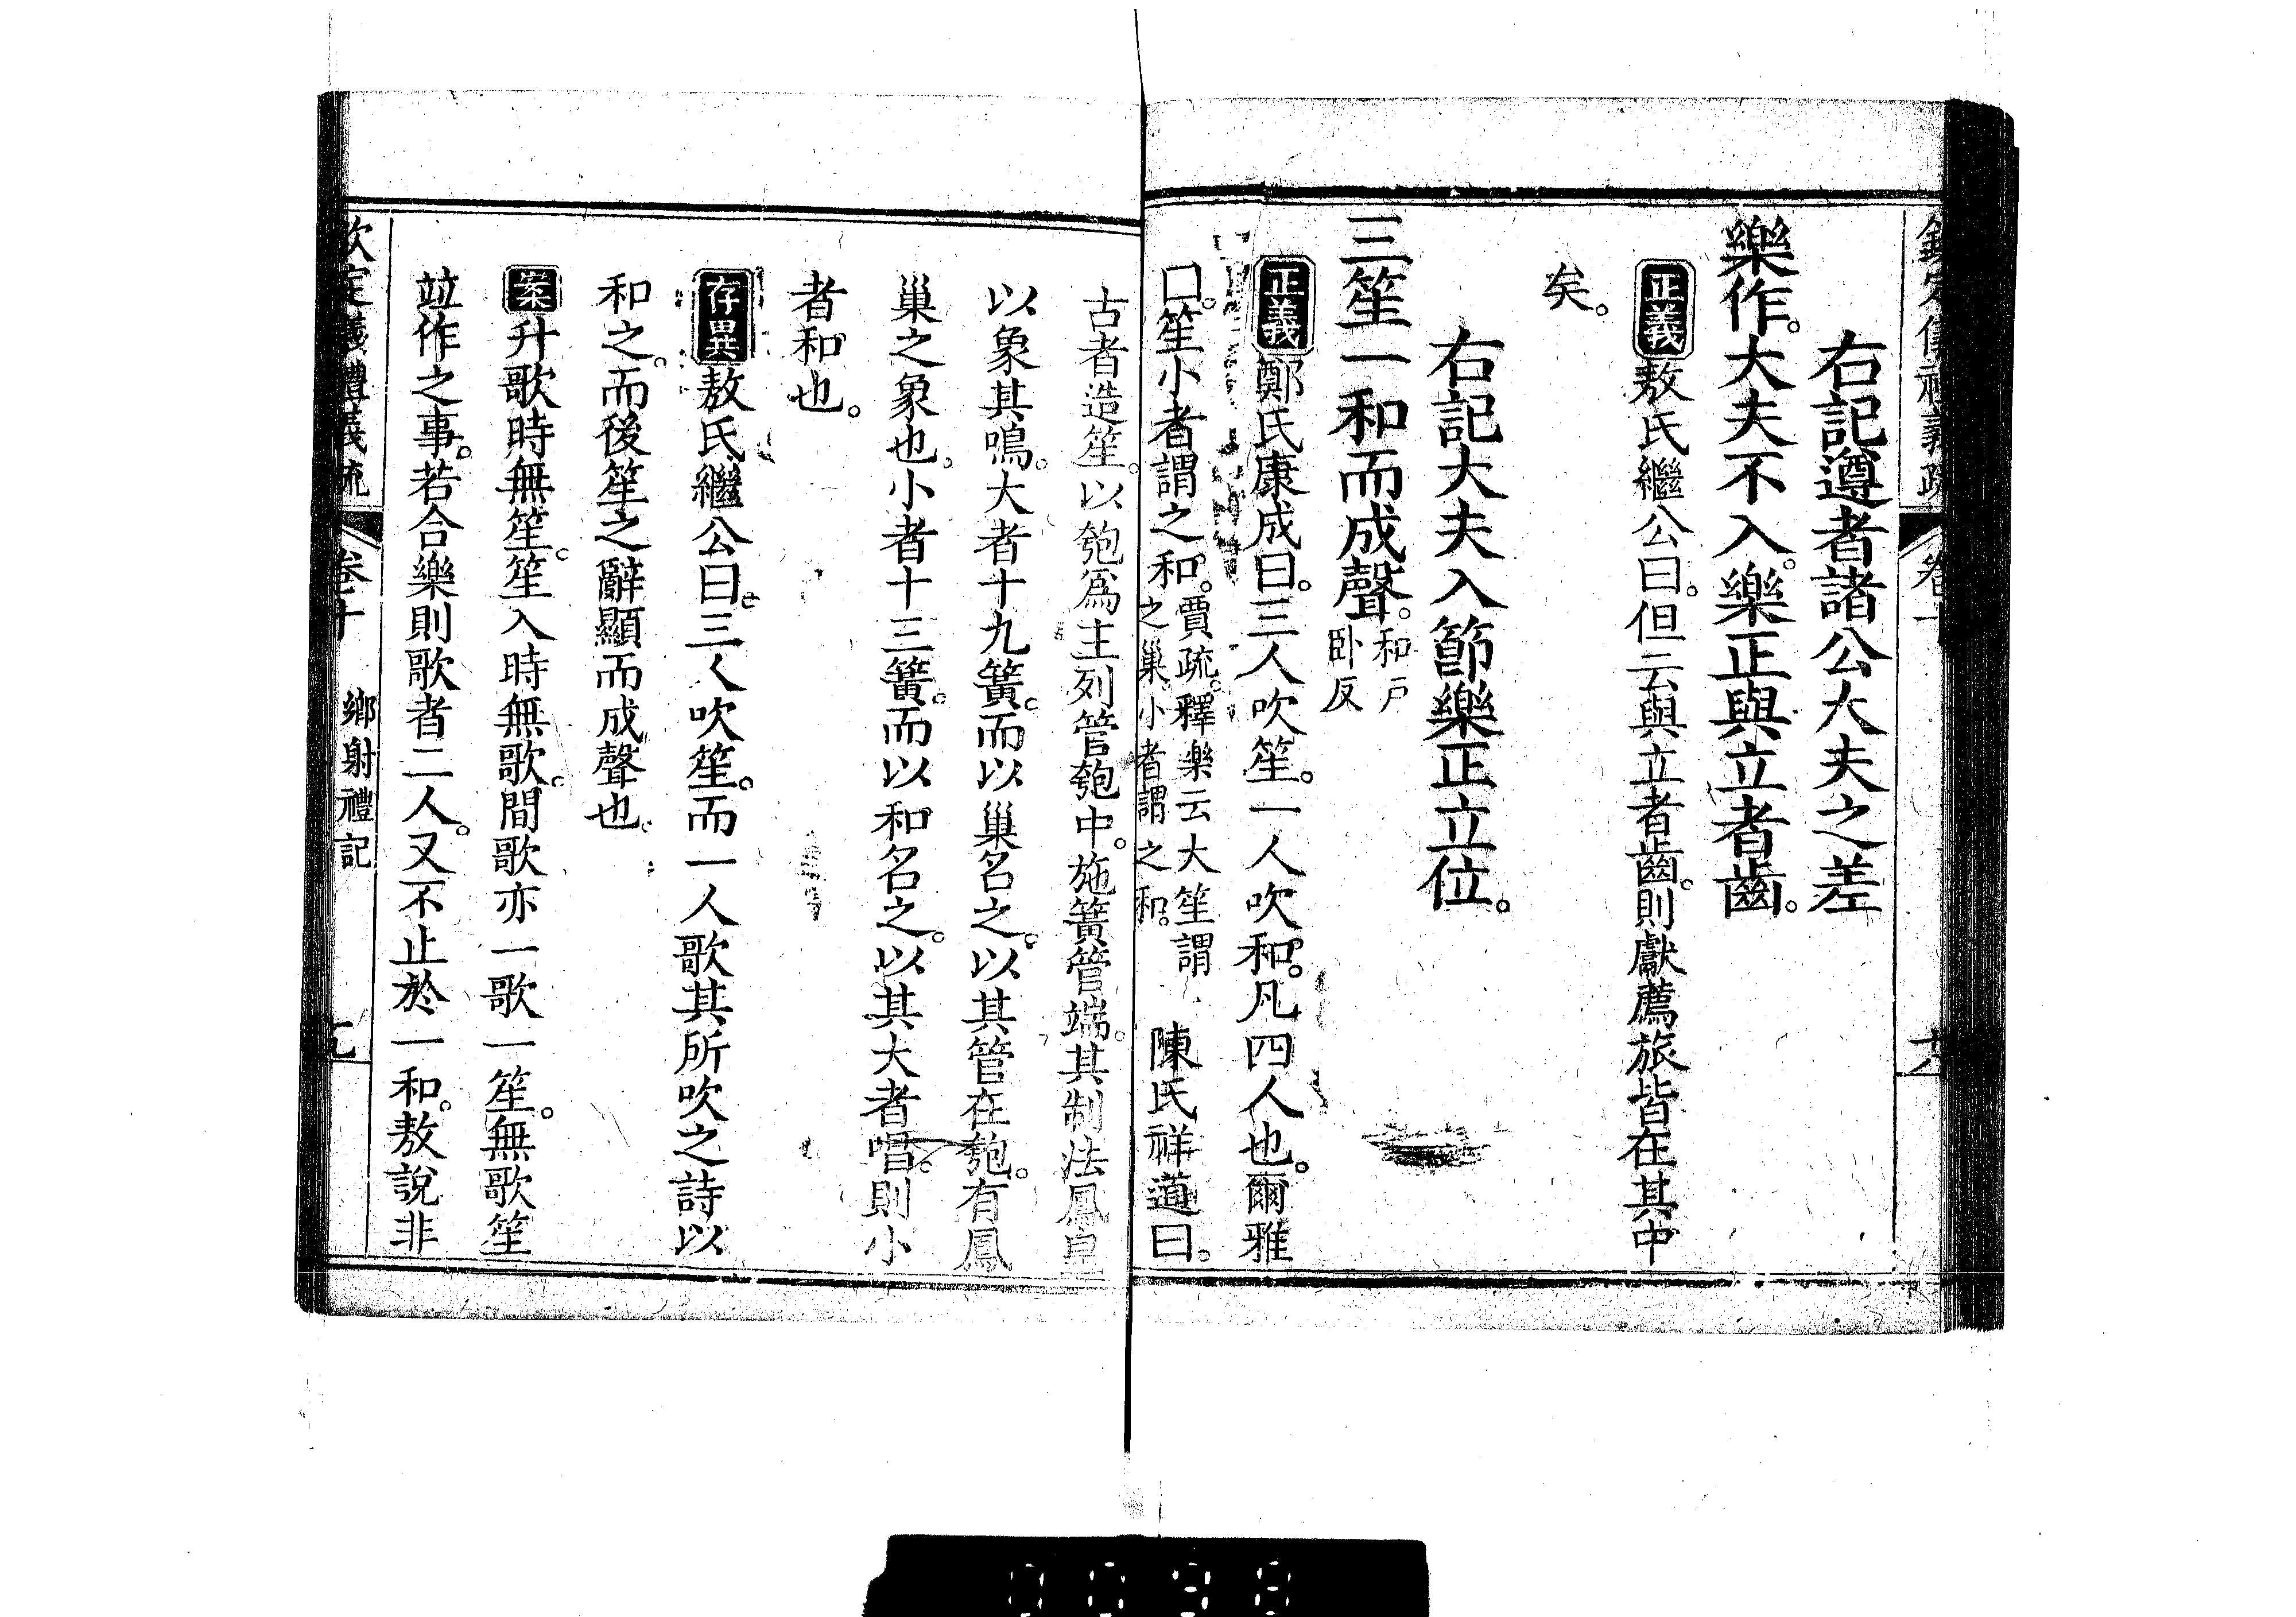 欽定儀禮義疏 卷十
右記遵者諸公大夫之差
樂作。大夫不入。樂正與立者齒。
正義敖氏繼公曰。但云與立者齒。則獻薦旅皆在其中
矣。
右記大夫入節樂正立位。
三笙一和而成聲。和戶
卧反
正義鄭氏康成曰。三人吹笙。一人吹和。凡四人也。爾雅
曰。笙小者謂之和。賈疏。釋樂云大笙謂
之巢。小者謂之和。
陳氏祥道曰。
古者造笙。以匏爲主列管匏中。施簧管端。其制法鳳皇
以象其鳴。大者十九簧。而以巢名之。以其管在匏。有鳳
巢之象也。小者十三簧。而以和名之。以其大者唱。則小
者和也。
存異敖氏繼公曰。三人吹笙。而一人歌其所吹之詩以
和之。而後笙之辭顯而成聲也。
案升歌時無笙。笙入時無歌。間歌亦一歌一笙。無歌笙
竝作之事。若合樂則歌者二人。又不止於一和。敖說非
欽定儀禮義疏 卷十 鄉射禮記